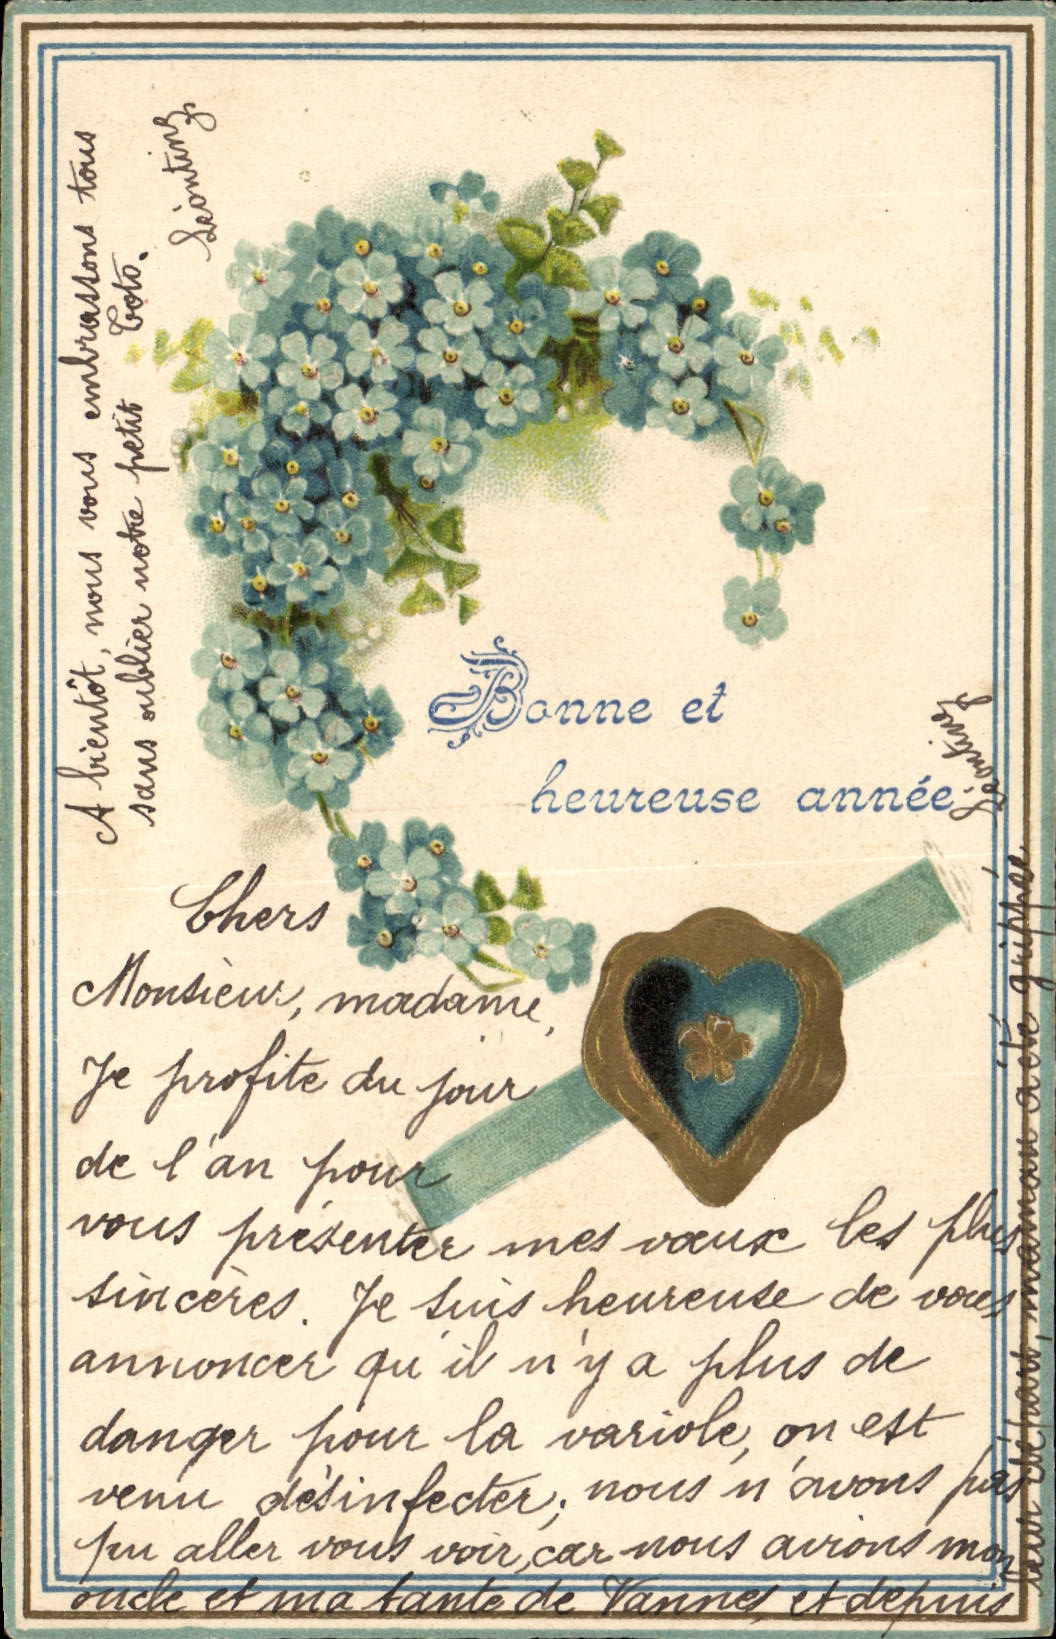 Bonne et
heureuse année
Chers
Monsieur, madame,
Je profite du jour
de l'an pour
vous présenter mes vœux les plus
sincères. Je suis heureuse de vous
annoncer qu'il n'y a plus de
danger pour la variole, on est
venu désinfecter; nous n'avons pas
pu aller vous voir, car nous avions mon
oncle et ma tante de Vannes, et depuis
leur départ, maman a été grippée.
Léontine
A bientôt, nous vous embrassons tous
sans oublier notre petit Toto.
Léontine